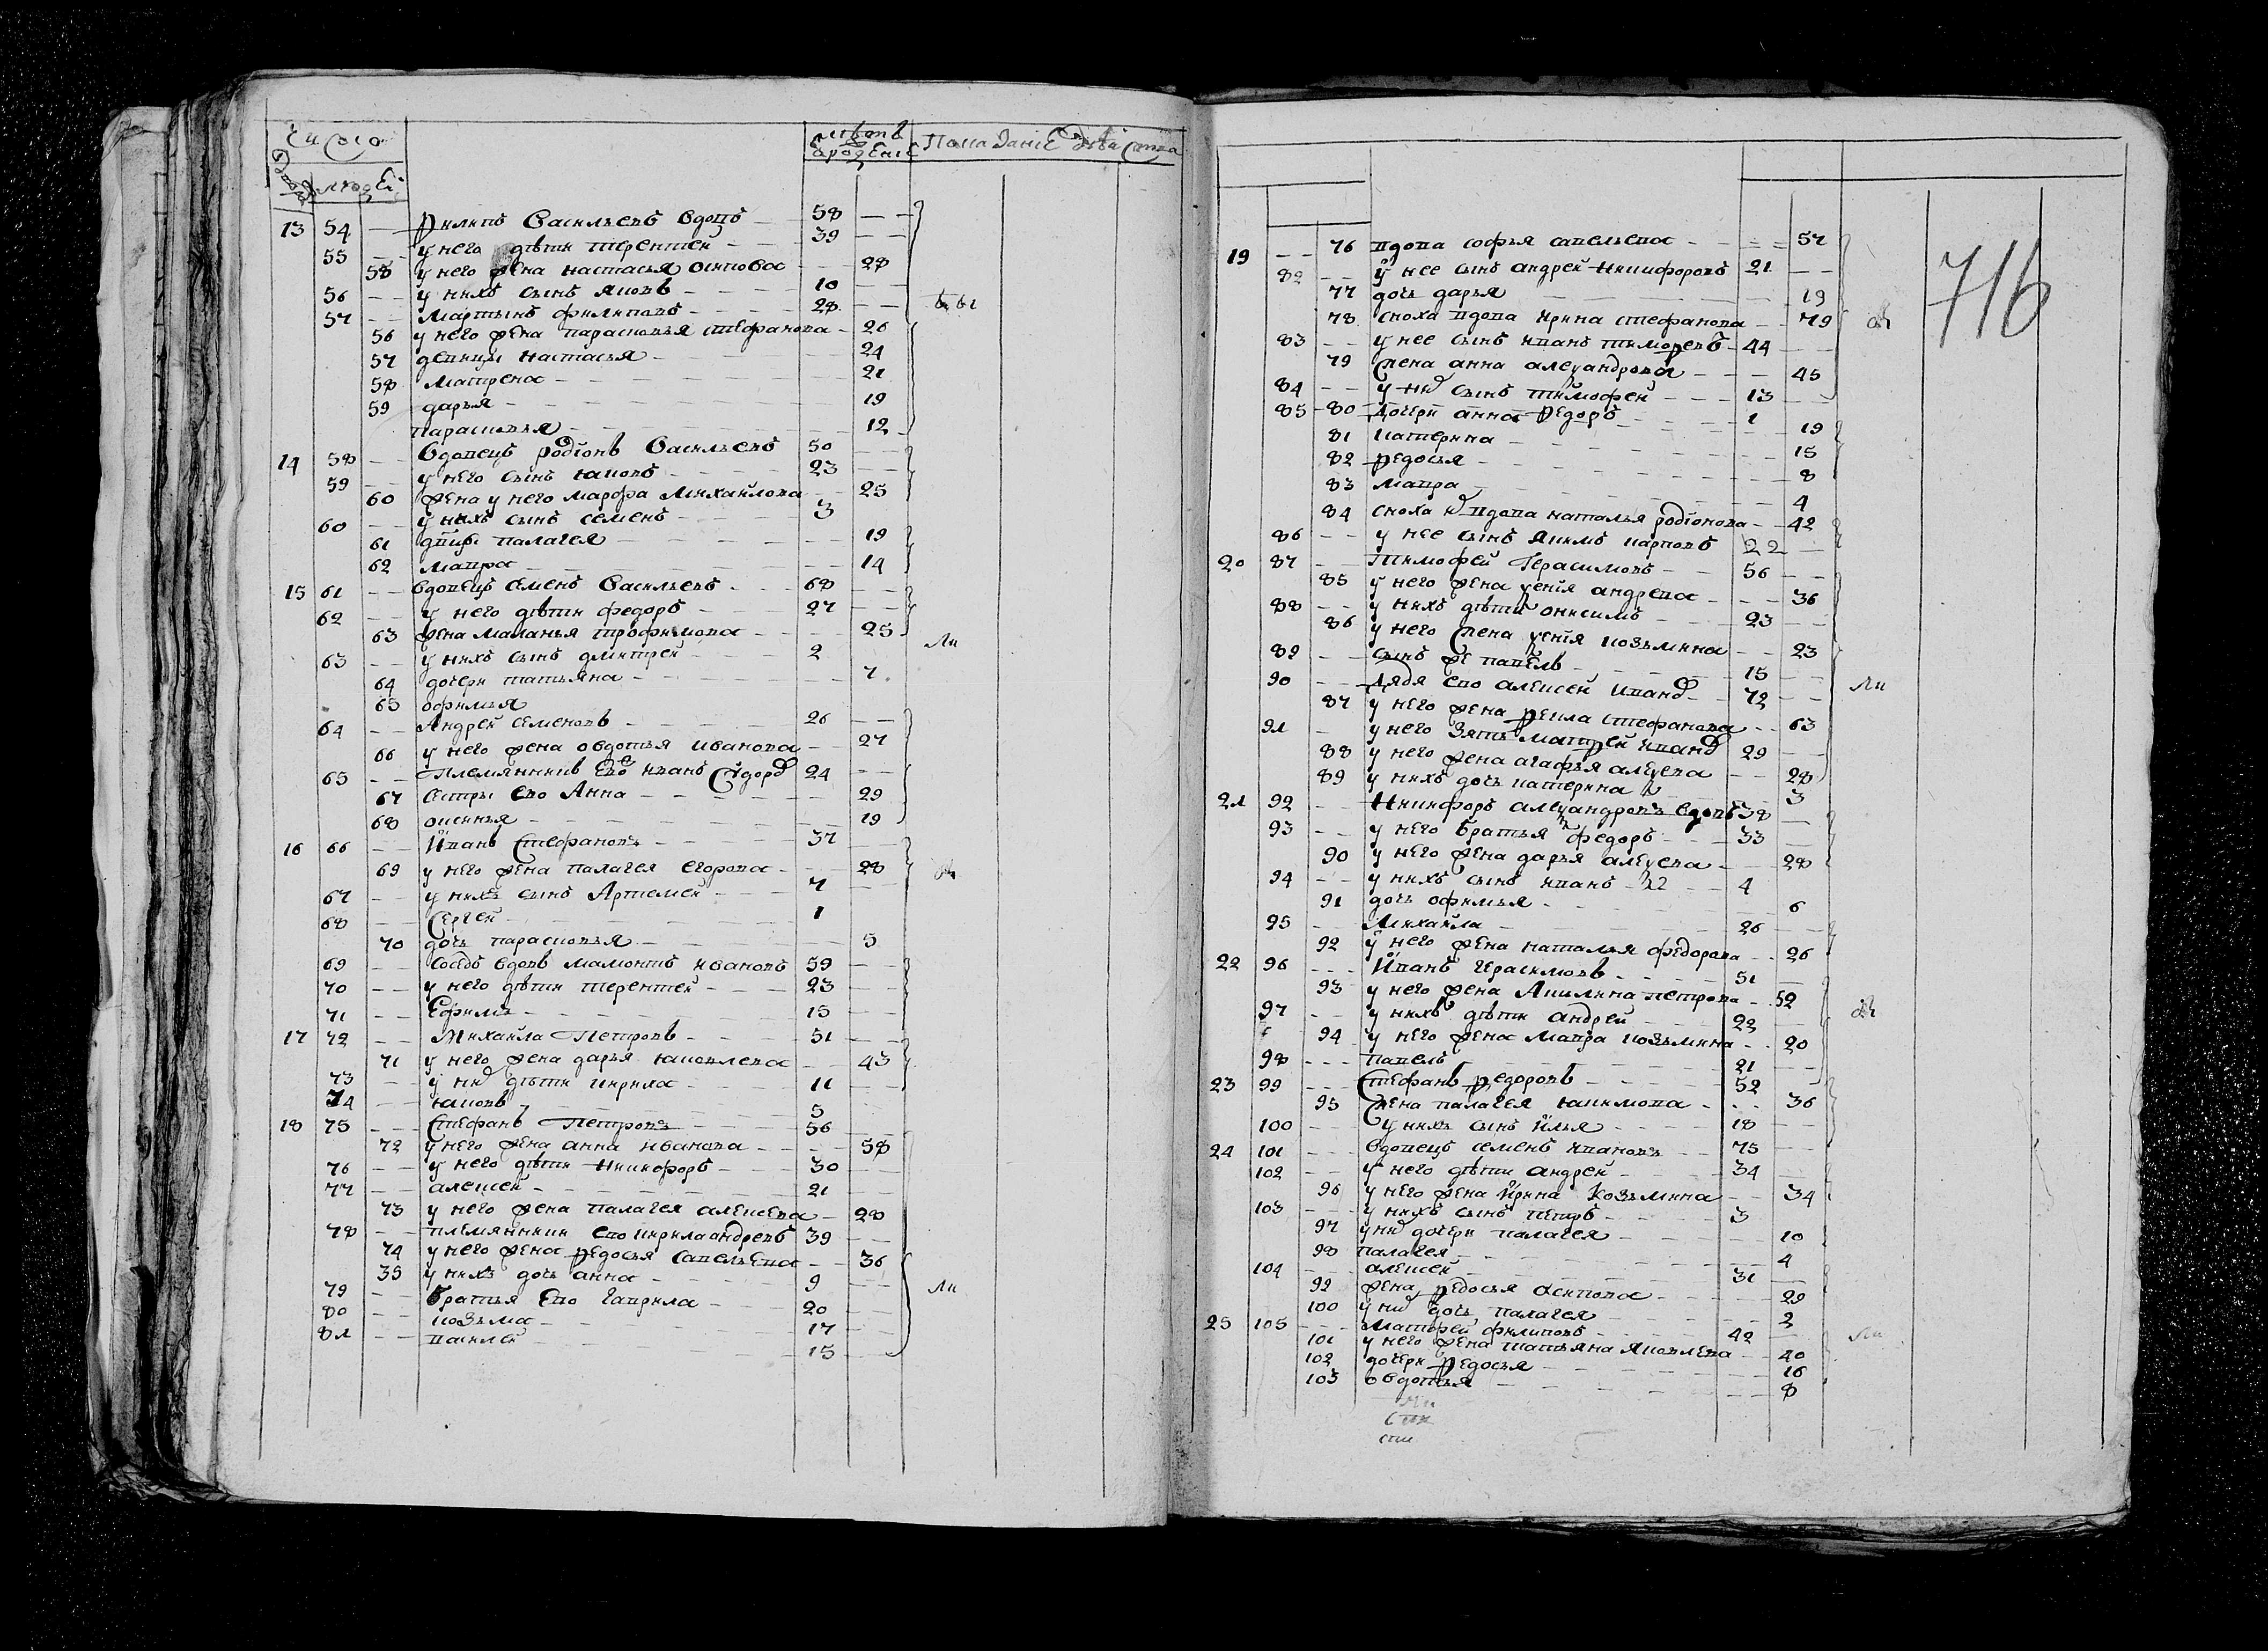 Число
дворовъ
людей
лѣтъ отъ рожденіе
Показаніе дѣйства
13 54 — Филипъ Васильевъ вдовъ — 58 — —
55 — — у него дѣти терентей — — 39 — —
55 у него жена настасья осипова — — 28
56 — — у нихъ сынъ яковъ — — — — 10 — —
57 — — Мартынъ филиповъ — — — 28 — —
56 у него жена парасковья стефанова — 26
57 девицы настасья — — — — 24
58 Матрена — — — — — 21
59 дарья — — — — — 19
парасковья — — — — — 12
14 58 — — вдовецъ родіонъ Васильевъ 50 — —
59 — — у него сынъ яковъ — — — 23 — —
60 жена у него марфа михайлова — 25
60 — — у нихъ сынъ семенъ — — — 3
61 дѣвицы палагея — — — — 19
62 мавра — — — — — 14
15 61 — — вдовецъ семенъ Васильевъ — — 68 — —
62 — — у него дѣти федоръ — — 27 — —
63 жена маланья трофимова — — — 25
63 — — у нихъ сынъ дмитрей — — — 2
64 дочери татьяна — — — — — 7
65 офимья
64 — — Андрей семеновъ — — — — 26 — —
66 у него жена овдотья иванова — 27
65 — — Племянникъ его иванъ Сидоров 24 — —
67 сестры ево Анна — — — — 29
68 оксинья — — — — — 19
16 66 — — Иванъ Стефановъ — — — 37 — —
69 у него жена палагея егорова — — 28
67 — — у нихъ сынъ Артемей — — — 7
68 — — Сергей — — — — — 1
70 дочь парасковья — — — — 5
69 — — сосѣдъ вдовъ мамонтъ ивановъ 59 — —
70 — — у него дѣти терентей — — — 23 — —
71 — — Ефимъ — — — — — 15 — —
17 72 — — Михаила Петровъ — — — 51 — —
71 у него жена дарья яковлева — — 43
73 — — у них дѣти кирила — — — 11 — —
74 — — яковъ — — — — — 5
18 75 — — Стефанъ Петровъ — — — 56 — —
72 у него жена анна иванова — — — 58
76 — — у него дѣти никифоръ — — 30 — —
77 — — алексей — — — — — 21 — —
73 у него жена палагея алексева — 28
78 — — племянникъ ево кирила андреевъ 39 — —
74 у него жена федосья савельева — — 36
35 у нихъ дочь анна — — — — 9
79 — — братья Ево гаврила — — — 20 — —
80 — — козьма — — — — — 17 — —
81 — — василей — — — — — 15 — —
716
19 — — 76 вдова софья савельева — — — 57
82 — — у нее сынъ андрей никифоровъ 21 — —
77 дочь дарья — — — — — 19
78 сноха вдова ирина стефанова — — 79
83 — — у нее сынъ иванъ тимофеевъ — 44 — —
79 жена анна александрова — — — 45
84 — — у них сынъ тимофей — — — 13 — —
85 — 80 дочери анна федоръ — — — 1 19
81 катерина — — — — — 15
82 федосья — — — — — 8
83 мавра — — — — — 4
84 сноха их вдова наталья родіонова — — 42
86 — — у нее сынъ якимъ карповъ 22 —
20 87 — — Тимофей Герасимовъ — — 56 — —
85 у него жена ксенія андрева — — — 36
88 — — у нихъ дѣти онисимъ — — — 23 — —
86 у него жена ксенія козьмина — — 23
89 — — сынъ же павелъ — — — — 15 — —
90 — — дядя ево алексей иванов — 72 — —
87 у него жена фекла стефанова — — 63
91 — у него зять матфей иванов 29 — —
88 у него жена агафья алексева — — 28
89 у нихъ дочь катерина 3
21 92 — — Никифоръ александровъ вдовъ 38 —
93 — — у него братья федоръ — — — 33 —
90 у него жена дарья алексева — — 28
94 — — у нихъ сынъ иванъ — — 4
91 дочь офимья — — — — — 6
95 — — Михайла — — — — — 26 — —
92 у него жена наталья федорова — — 26
22 96 — — — Иванъ Герасимовъ — — — 51 —
93 у него жена Акилина петрова — — 52
97 — — у нихъ дѣти андрей — — — 22 —
94 у него жена мавра козьмина — — 20
98 — — — павелъ — — — — — 21 — —
23 99 — — — Стефанъ федоровъ — — — 52 — —
95 жена палагея якимова — — — 36
100 — — у нихъ сынъ Илья — — — 18 — —
24 101 — — вдовецъ семенъ ивановъ — — 75 — —
102 — — у него дѣти андрей — — — 34 — —
96 у него жена ирина козьмина — — 34
103 — — — у нихъ сынъ петръ — — — 3
97 у них дочери палагея — — — — 10
98 палагея — — — — — 4
104 — — — алексей — — — — — 31 —
99 жена федосья осипова — — — 29
100 у них дочь палагея — — — — 2
25 105 — — — Матфей филиповъ — — — 42 —
101 у него жена татьяна яковлева — — 40
102 дочери федосья — — — — 16
103 овдотья — — — — — 8